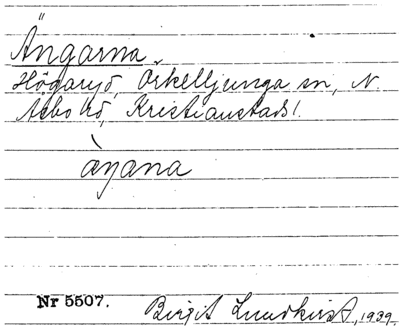 Ängarna
Högaryd, Örkelljunga sn, N.
Åsbo hd, Kristianstads l.
àŋana
Nr 5507.
Birgit Lundkvist, 1939.